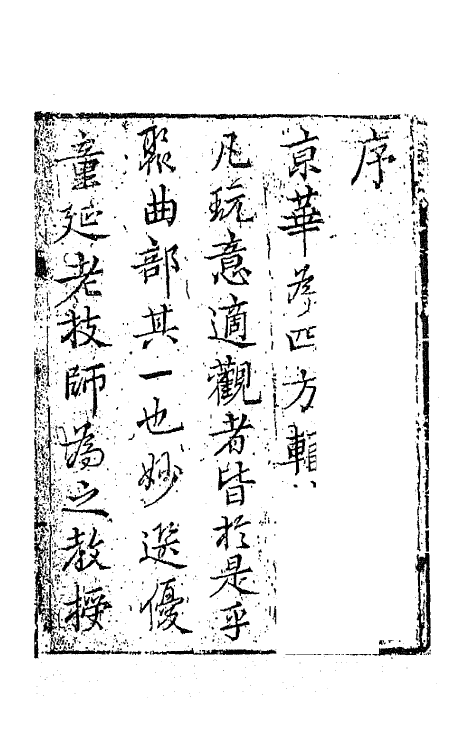 序
京華為四方輻
凡玩意適觀者皆於是乎
聚曲部其一也妙選優
童延老技師為之教授